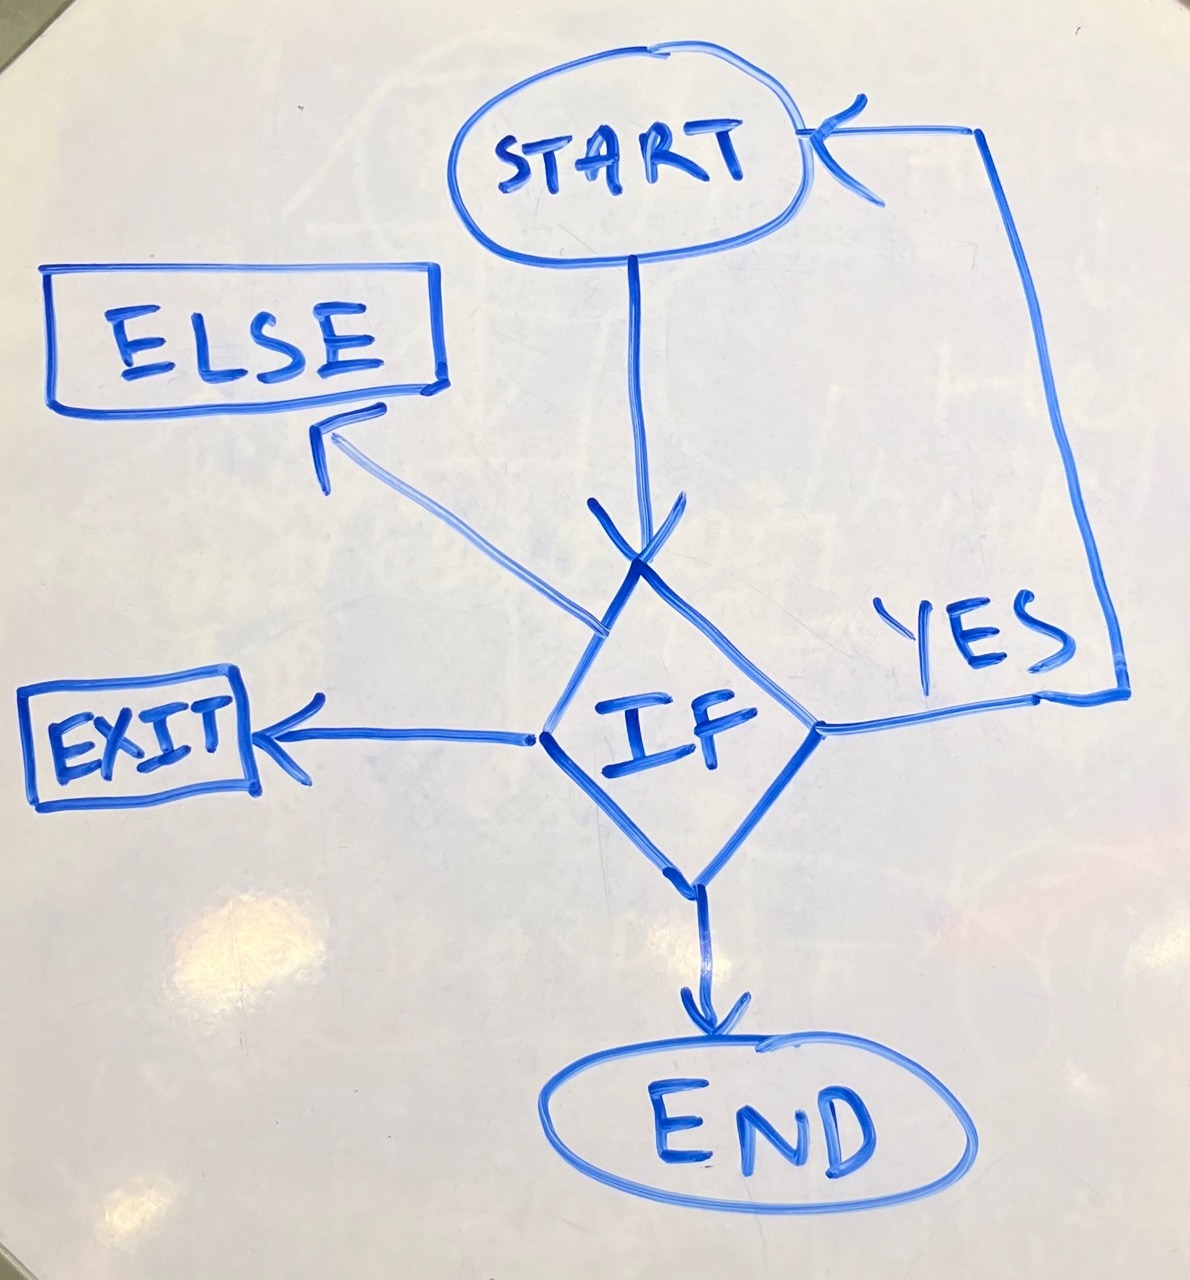 START
ELSE
YES
IF
EXIT
END